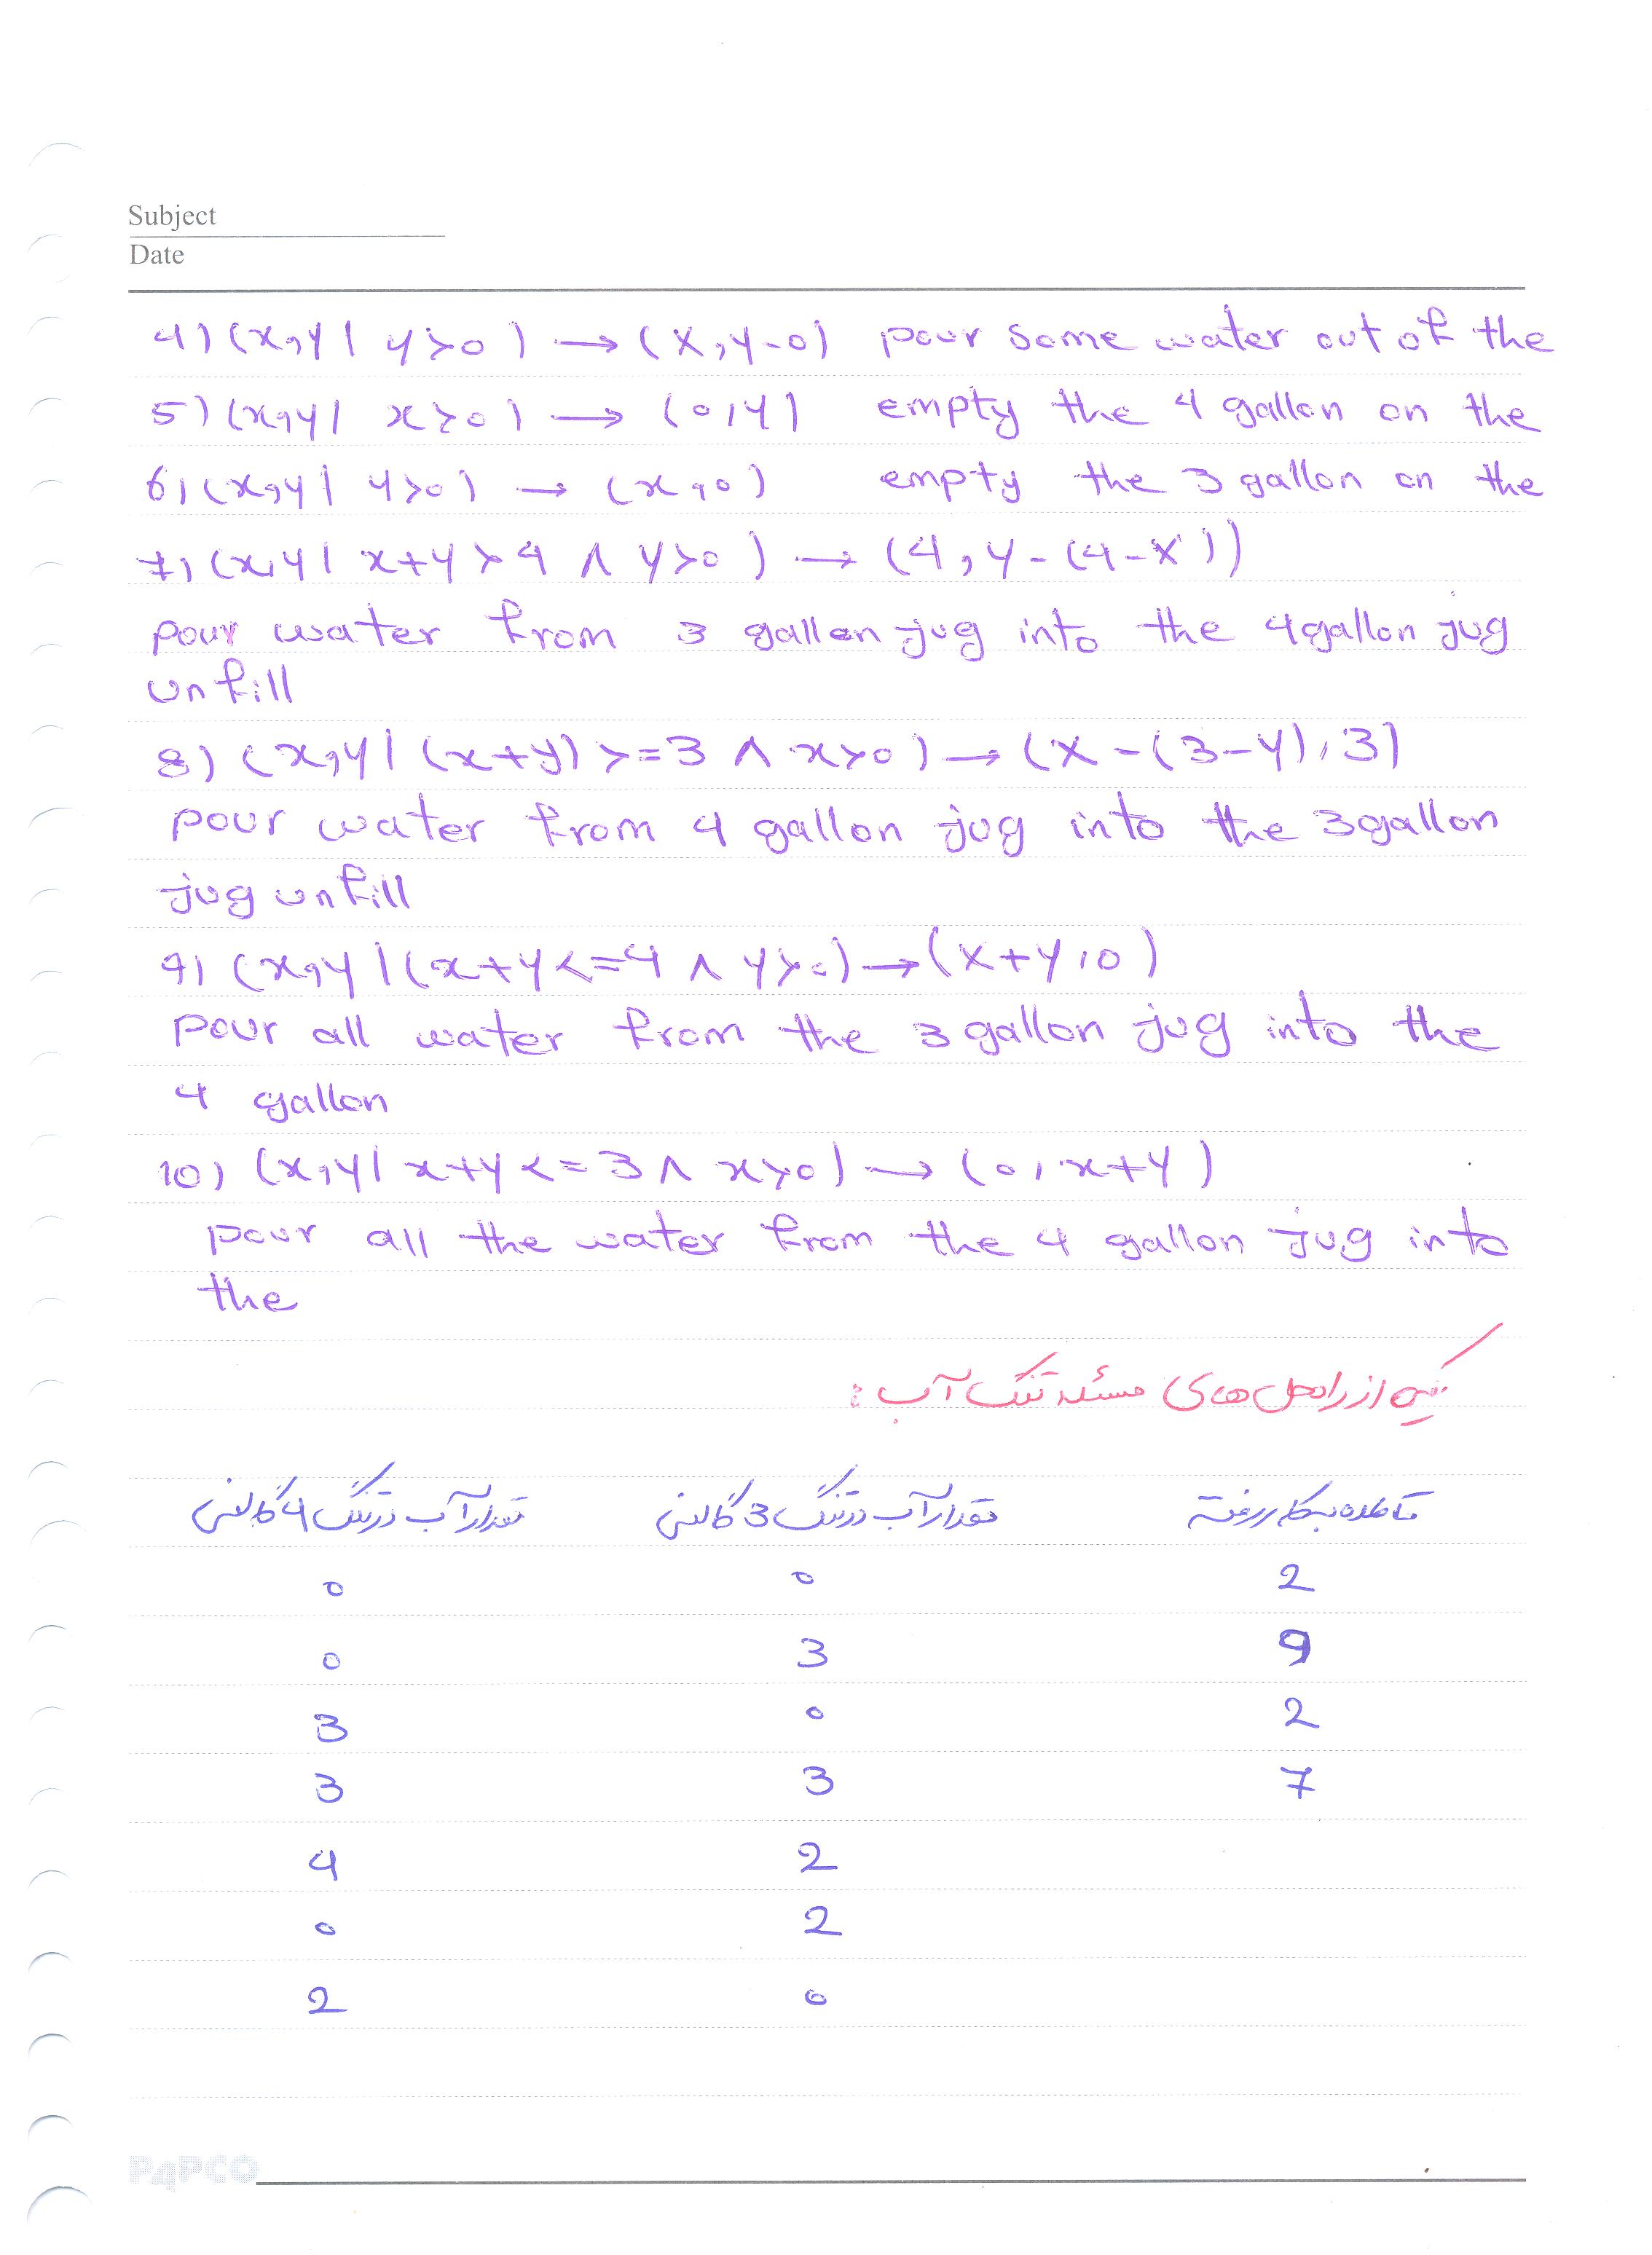 Subject
Date
4) (x,y | y>0) → (x,y-0) pour some water out of the
5) (x,y | x>0) → (0,y) empty the 4 gallon on the
6) (x,y | y>0) → (x,0) empty the 3 gallon on the
7) (x,y | x+y>4 ∧ y>0) → (4,y-(4-x))
pour water from 3 gallon jug into the 4gallon jug
unfill
8) (x,y | (x+y) >=3 ∧ x>0) → (x-(3-y),3)
pour water from 4 gallon jug into the 3gallon
jug unfill
9) (x,y | (x+y<=4 ∧ y>0) → (x+y,0)
pour all water from the 3 gallon jug into the
4 gallon
10) (x,y | x+y<=3 ∧ x>0) → (0,x+y)
pour all the water from the 4 gallon jug into
the
یکی از راه حل های مسئله تنگ آب :
مقدار آب در تنگ 4 گالنی مقدار آب در تنگ 3 گالنی قاعده بکار رفته
0 0 2
0 3 9
3 0 2
3 3 7
4 2
0 2
2 0
PAPCO